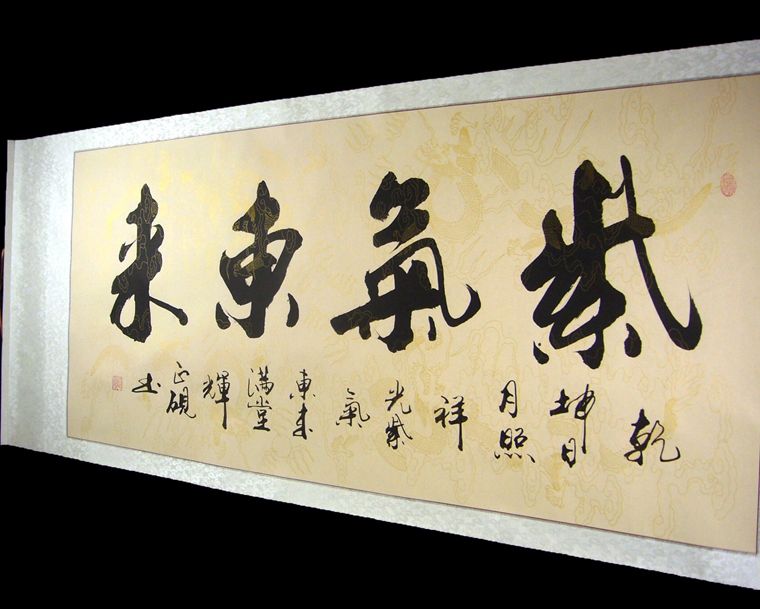 紫氣東來
乾
坤日
月照
祥
光紫
氣
東來
滿堂
輝
正硯
书